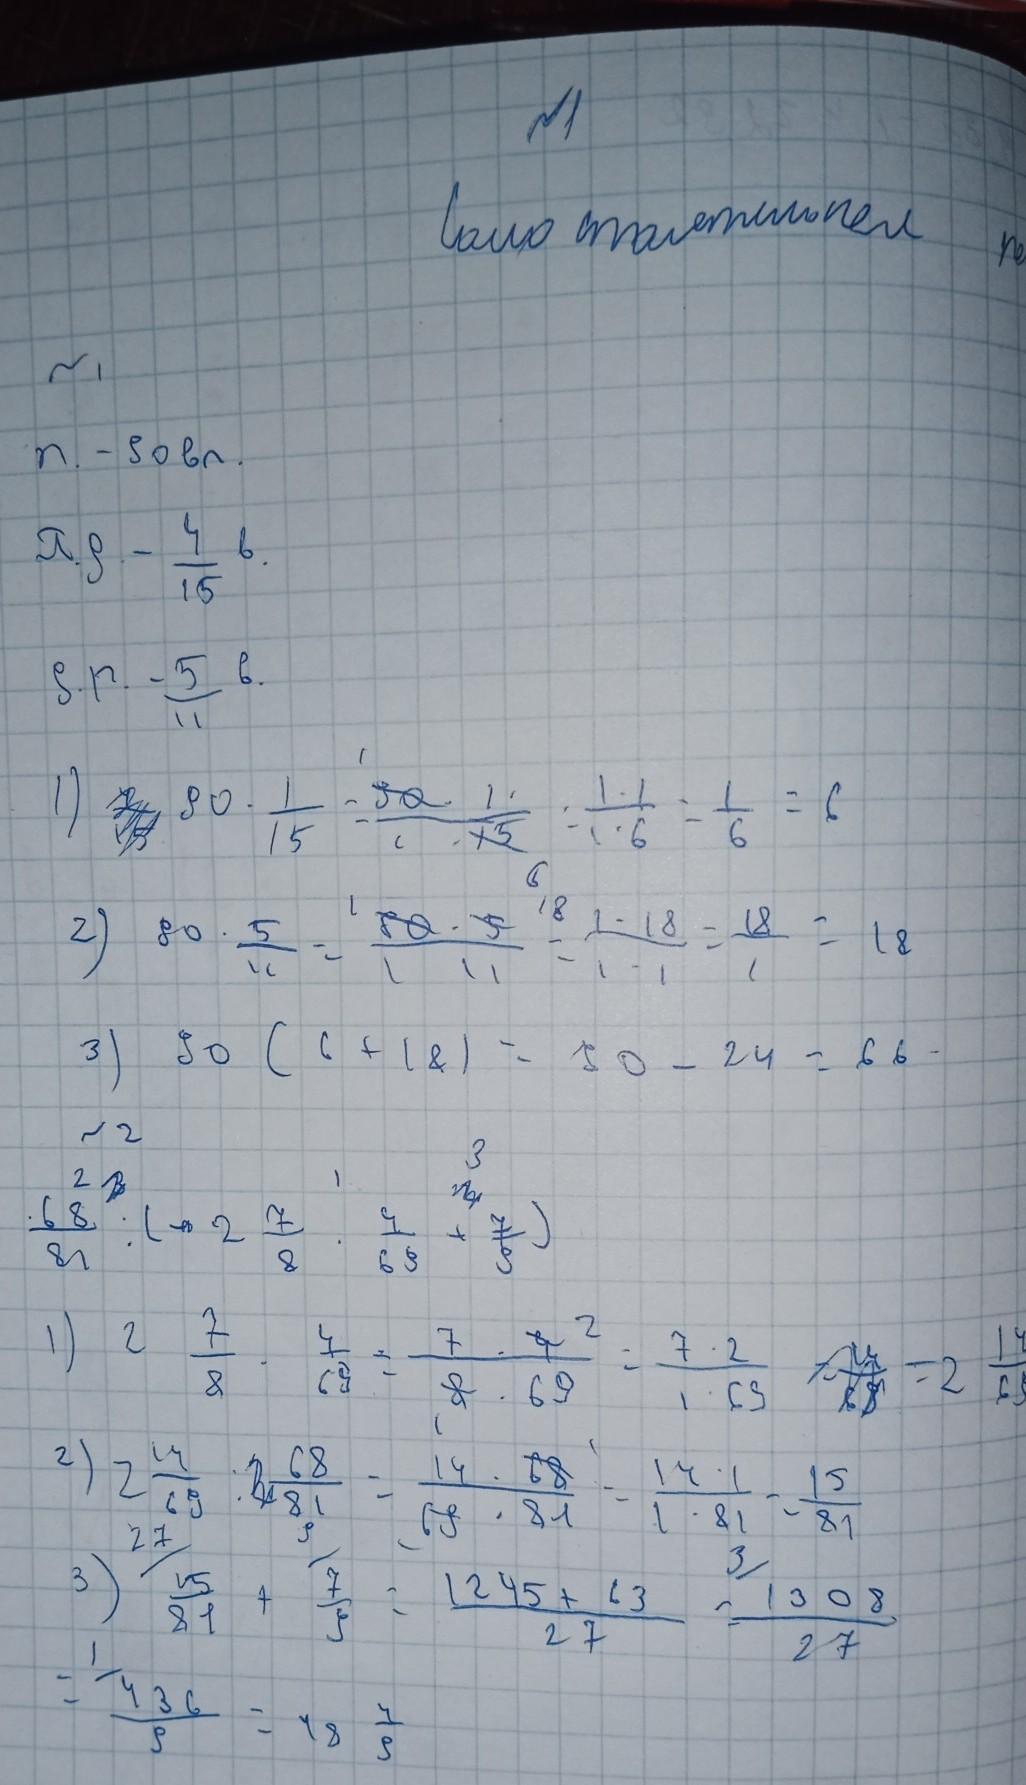 №1
Самостоятельная
№1
п. - 90 вл.
п.д. - 4/15 в.
д.п. - 5/11 в.
1) 90 · 1/15 = 90 · 1/1 · 15 = 1·1/1·6 = 1/6 = 6
2) 90 · 5/11 = 90 · 5/1 11 = 1·18/1·1 = 18/1 = 18
3) 90 ( 6 + 18) = 90 - 24 = 66
№2
68/81 : ( 2 7/8 · 4/69 + 7/9 )
1) 2 7/8 · 4/69 = 7 · 4/8 · 69 = 7·2/1·69 = 2 14/69
2) 2 14/69 : 68/81 = 14 · 68/69 · 81 = 14·1/1·81 = 15/81
3) 15/81 + 7/9 = 1245 + 63/27 = 1308/27
= 436/9 = 48 4/9